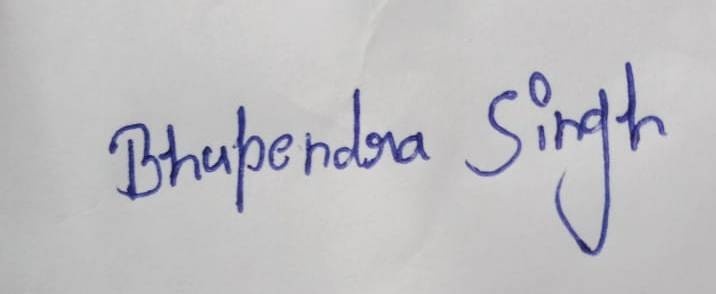 Bhupendra Singh